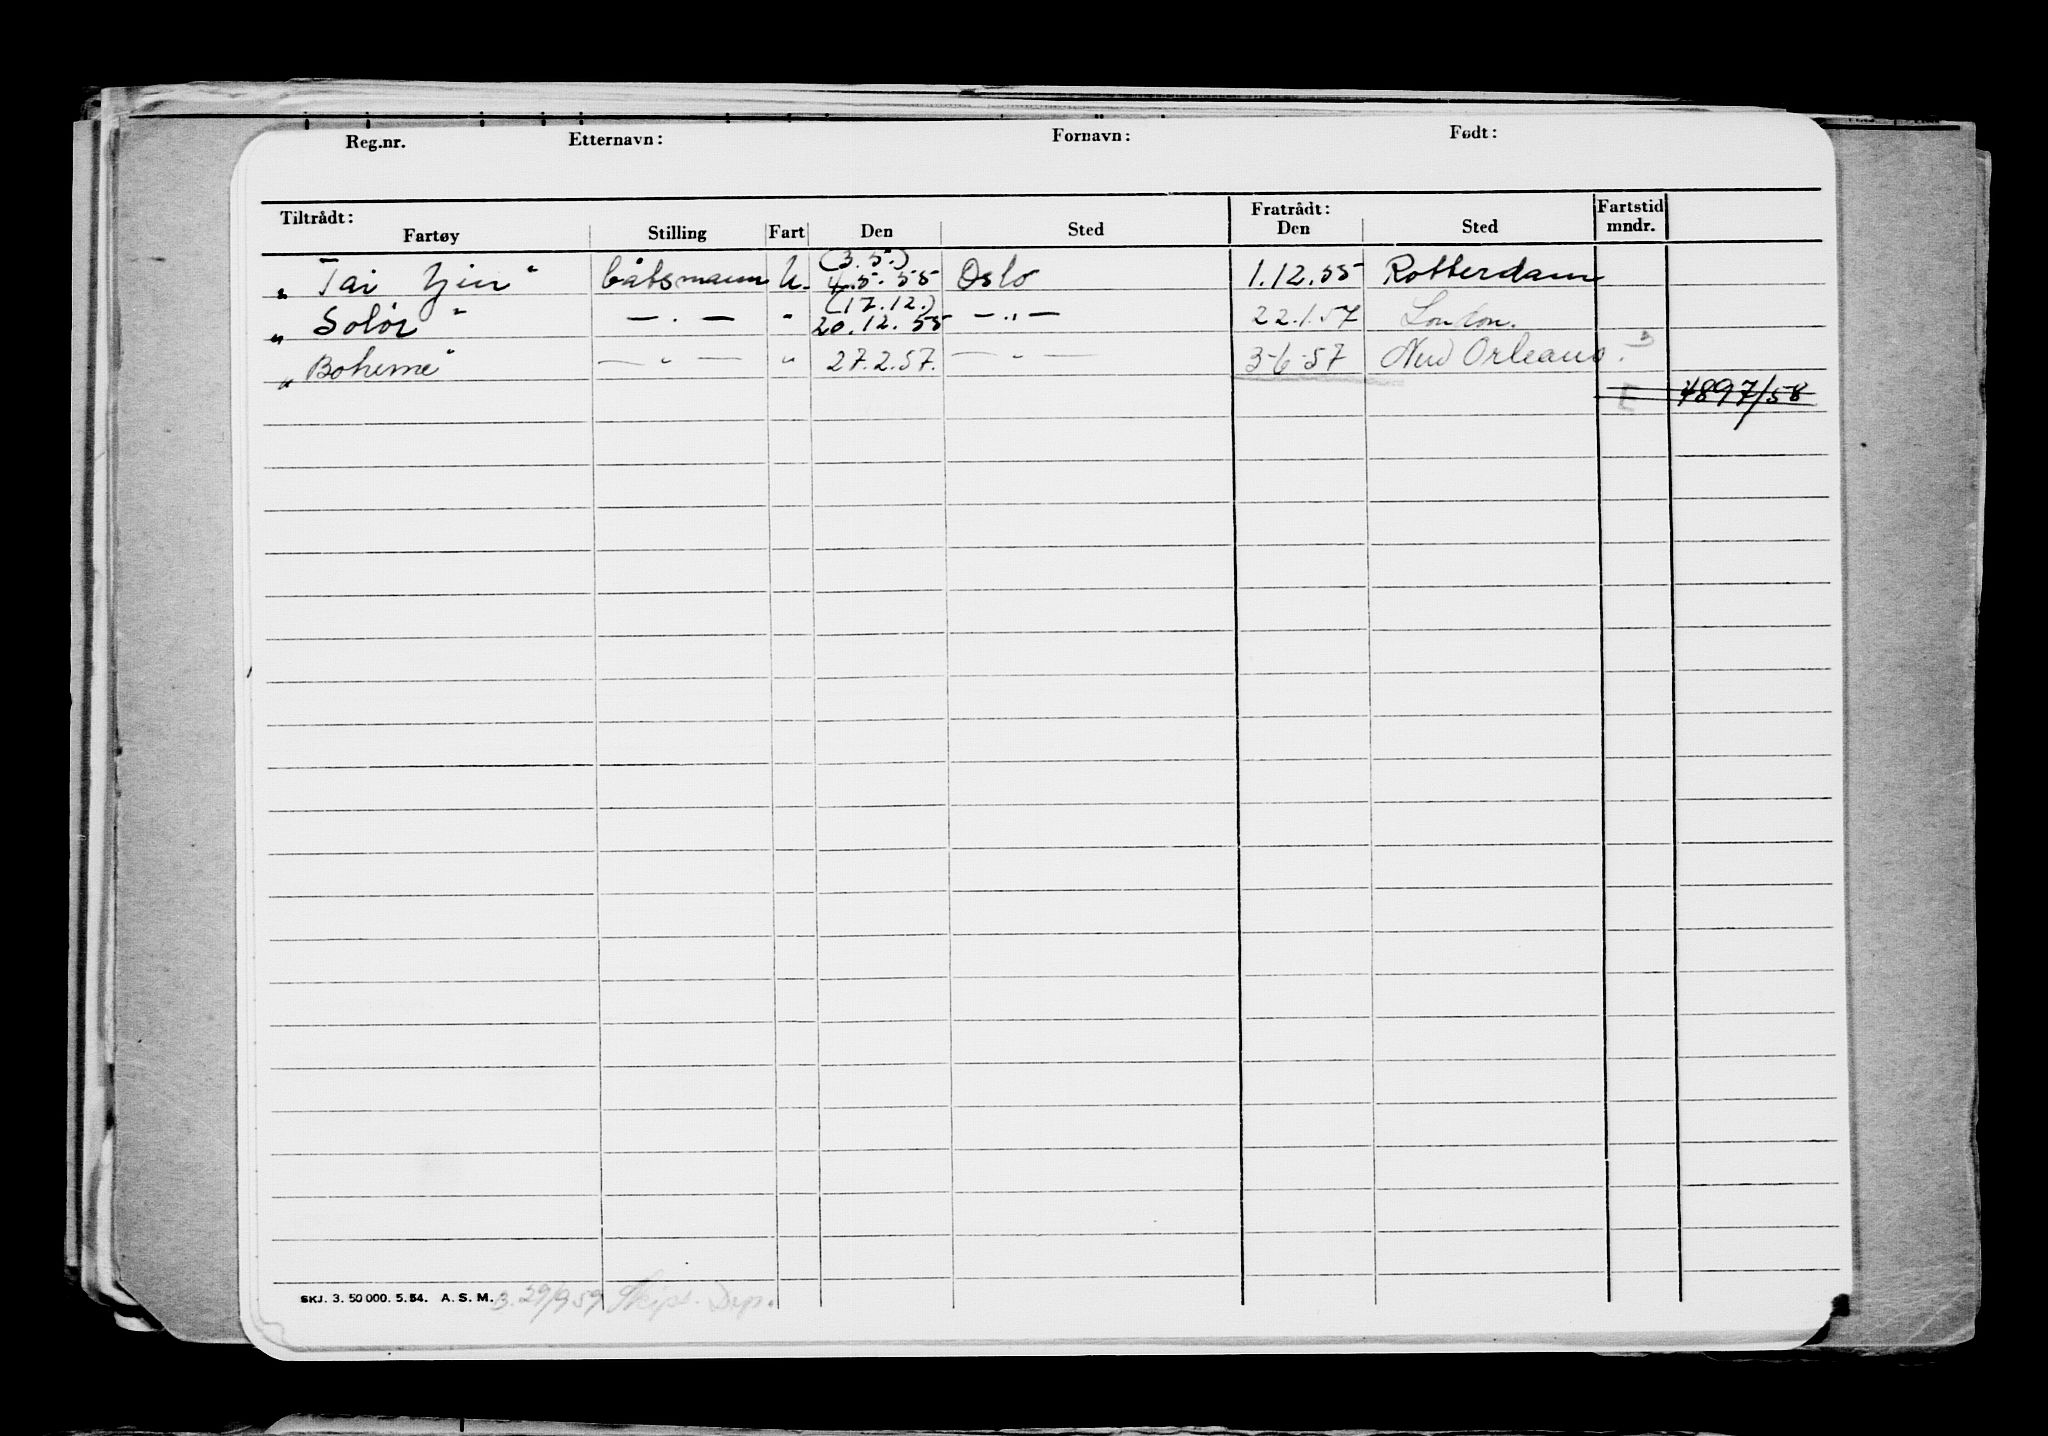 Reg.nr. Etternavn: Fornavn: Født:
Tiltrådt: Fratrådt: Fartstid
Fartøy Stilling Fart Den Sted Den Sted mndr.
(3.5.)
„ Tai Yin" båtsmann U. 4.5.55 Oslo 1.12.55 Rotterdam
(17.12.)
„ Solör " — . — " 20.12.55 — " — 22.1.57 London.
„ Boheme" — " — " 27.2.57. — " — 3-6-57 New Orleans. 3
E 4897/58
SKJ. 3. 50 000. 5. 54. A. S. M. 3. 29/9 59 Skips. Dep.